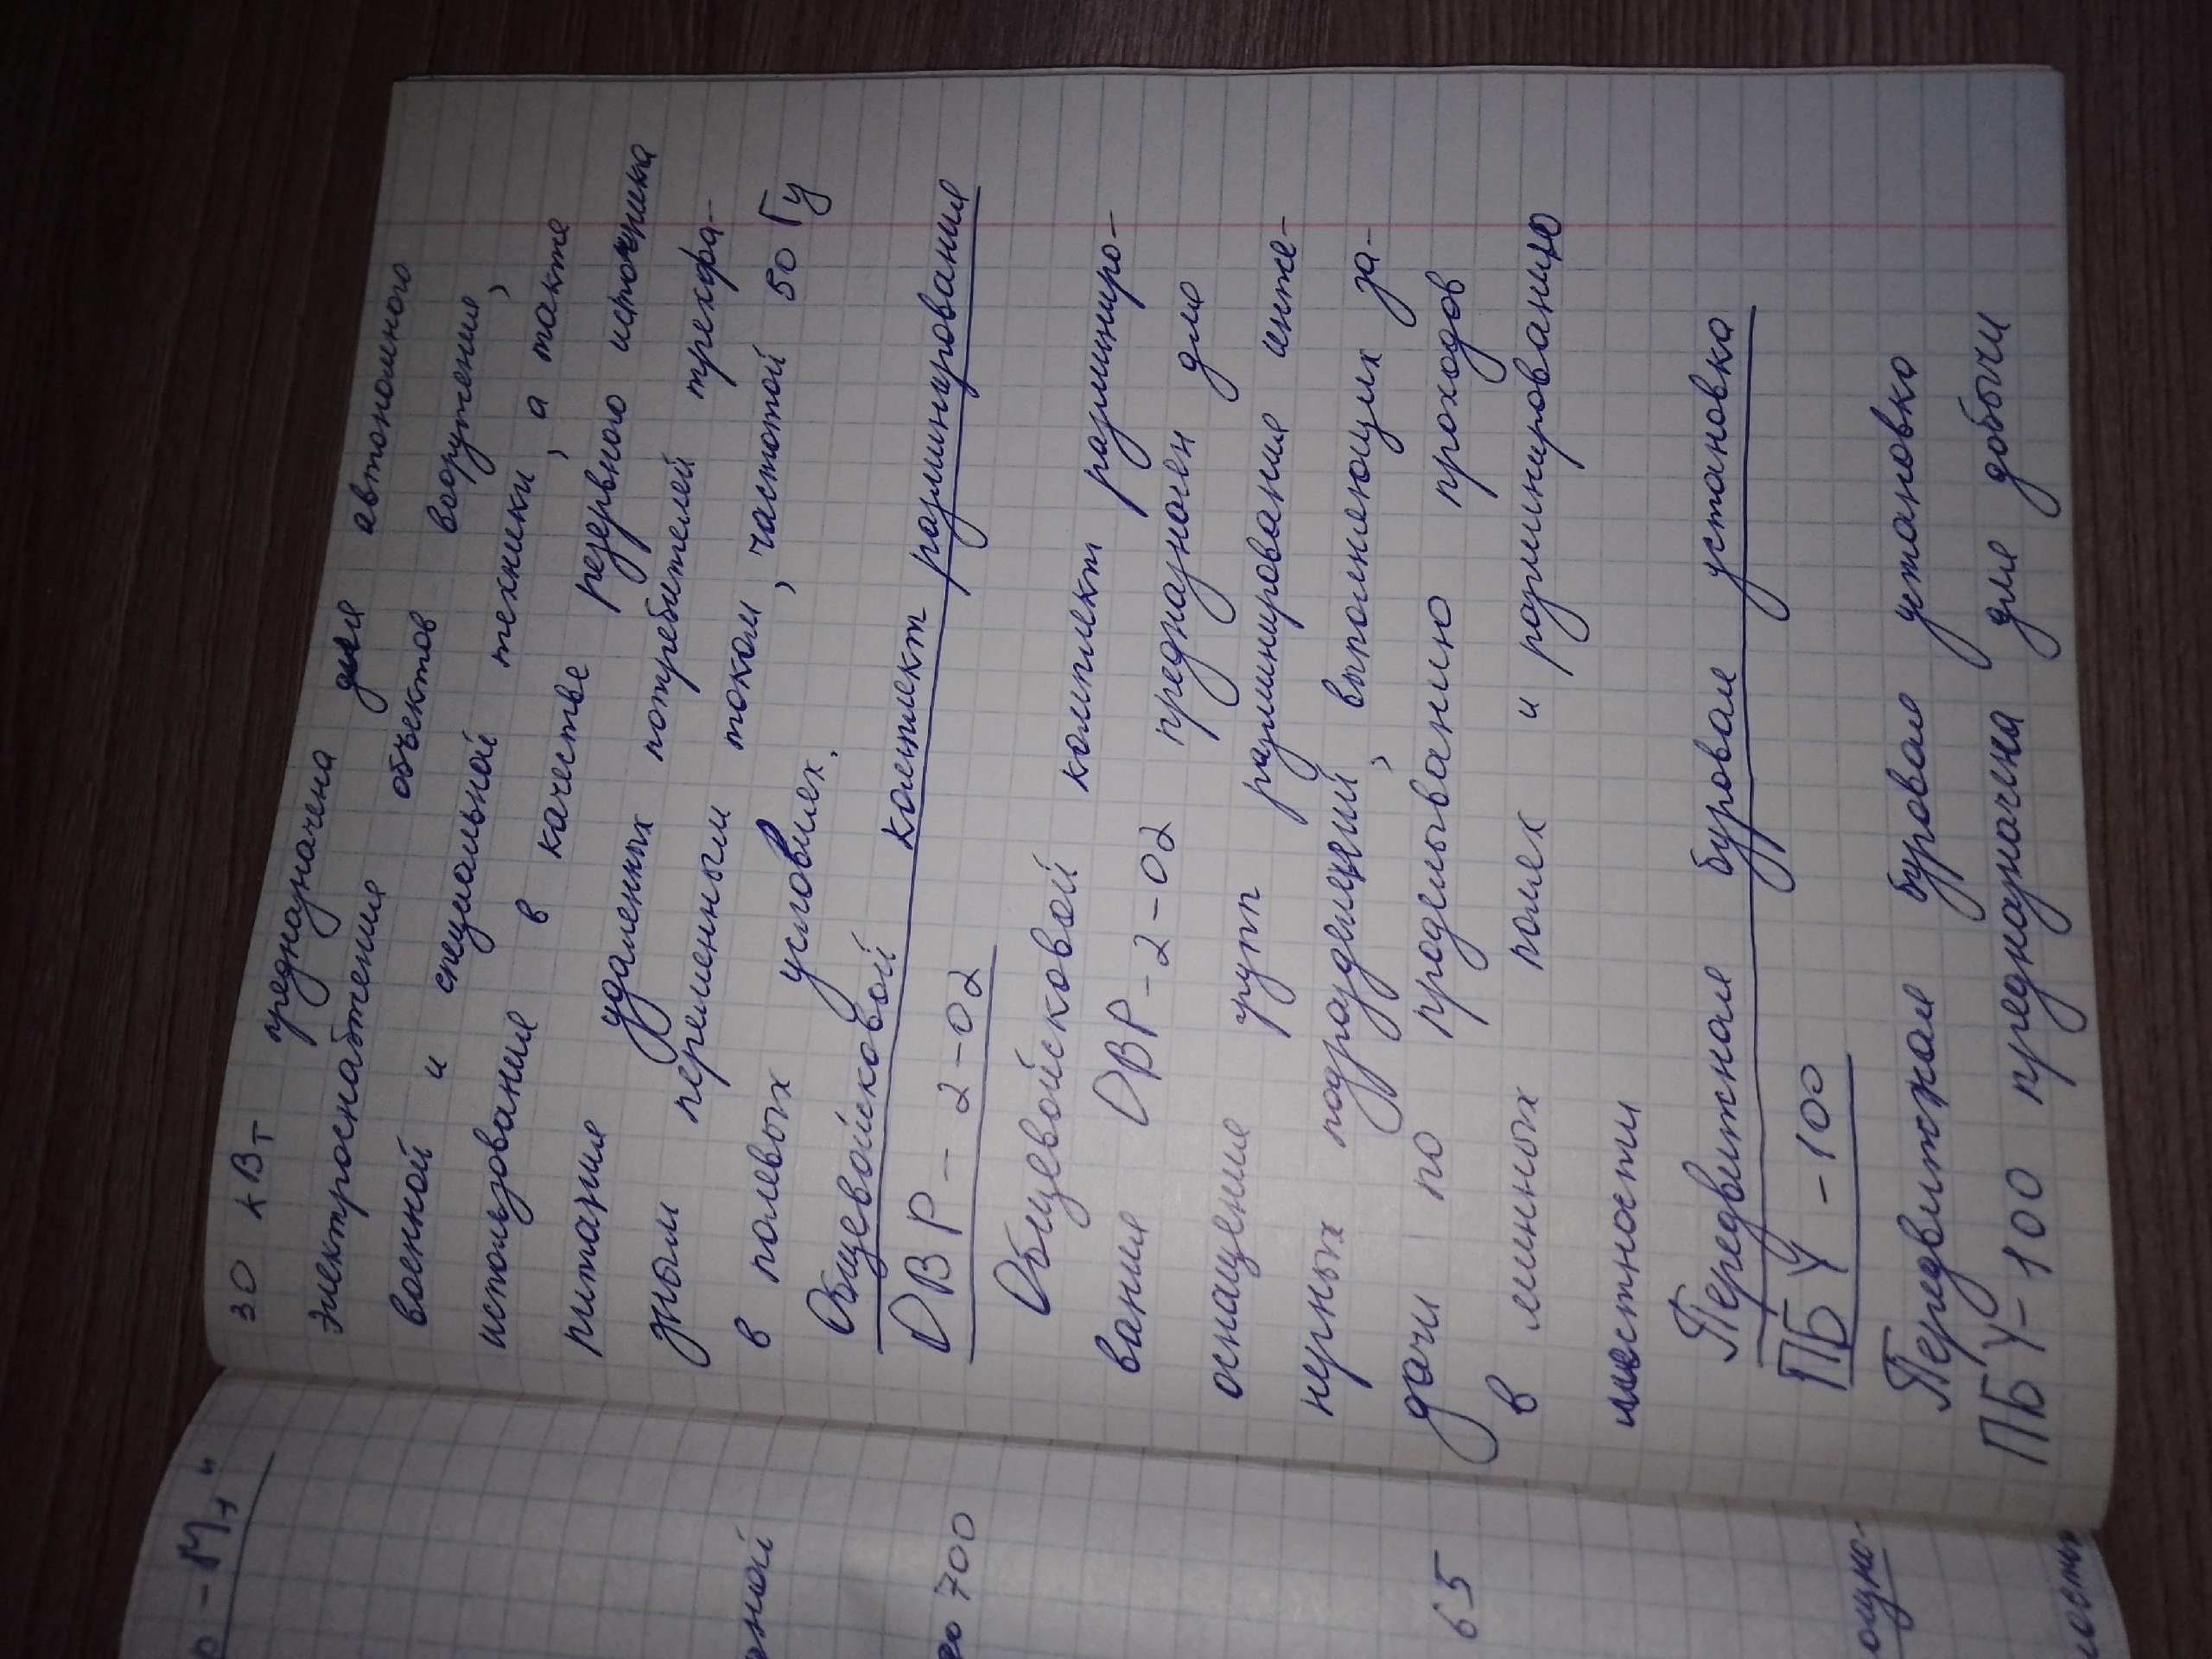 30 кВт предназначена для автономного
электроснабжения объектов вооружения,
военной и специальной техники, а также
использования в качестве резервного источника
питания удаленных потребителей трехфа-
зным переменным током, частотой 50 Гц
в полевых условиях.
Общевойсковой комплект разминирования
ОВР - 2-02
Общевойсковой комплект разминиро-
вания ОВР-2-02 предназначен для
оснащения групп разминирования инже-
нерных подразделений, выполняющих за-
дачи по проделыванию проходов
в минных полях и разминированию
местности
Передвижная буровая установка
ПБУ-100
Передвижная буровая установка
ПБУ-100 предназначена для добычи
-М1"
700
65